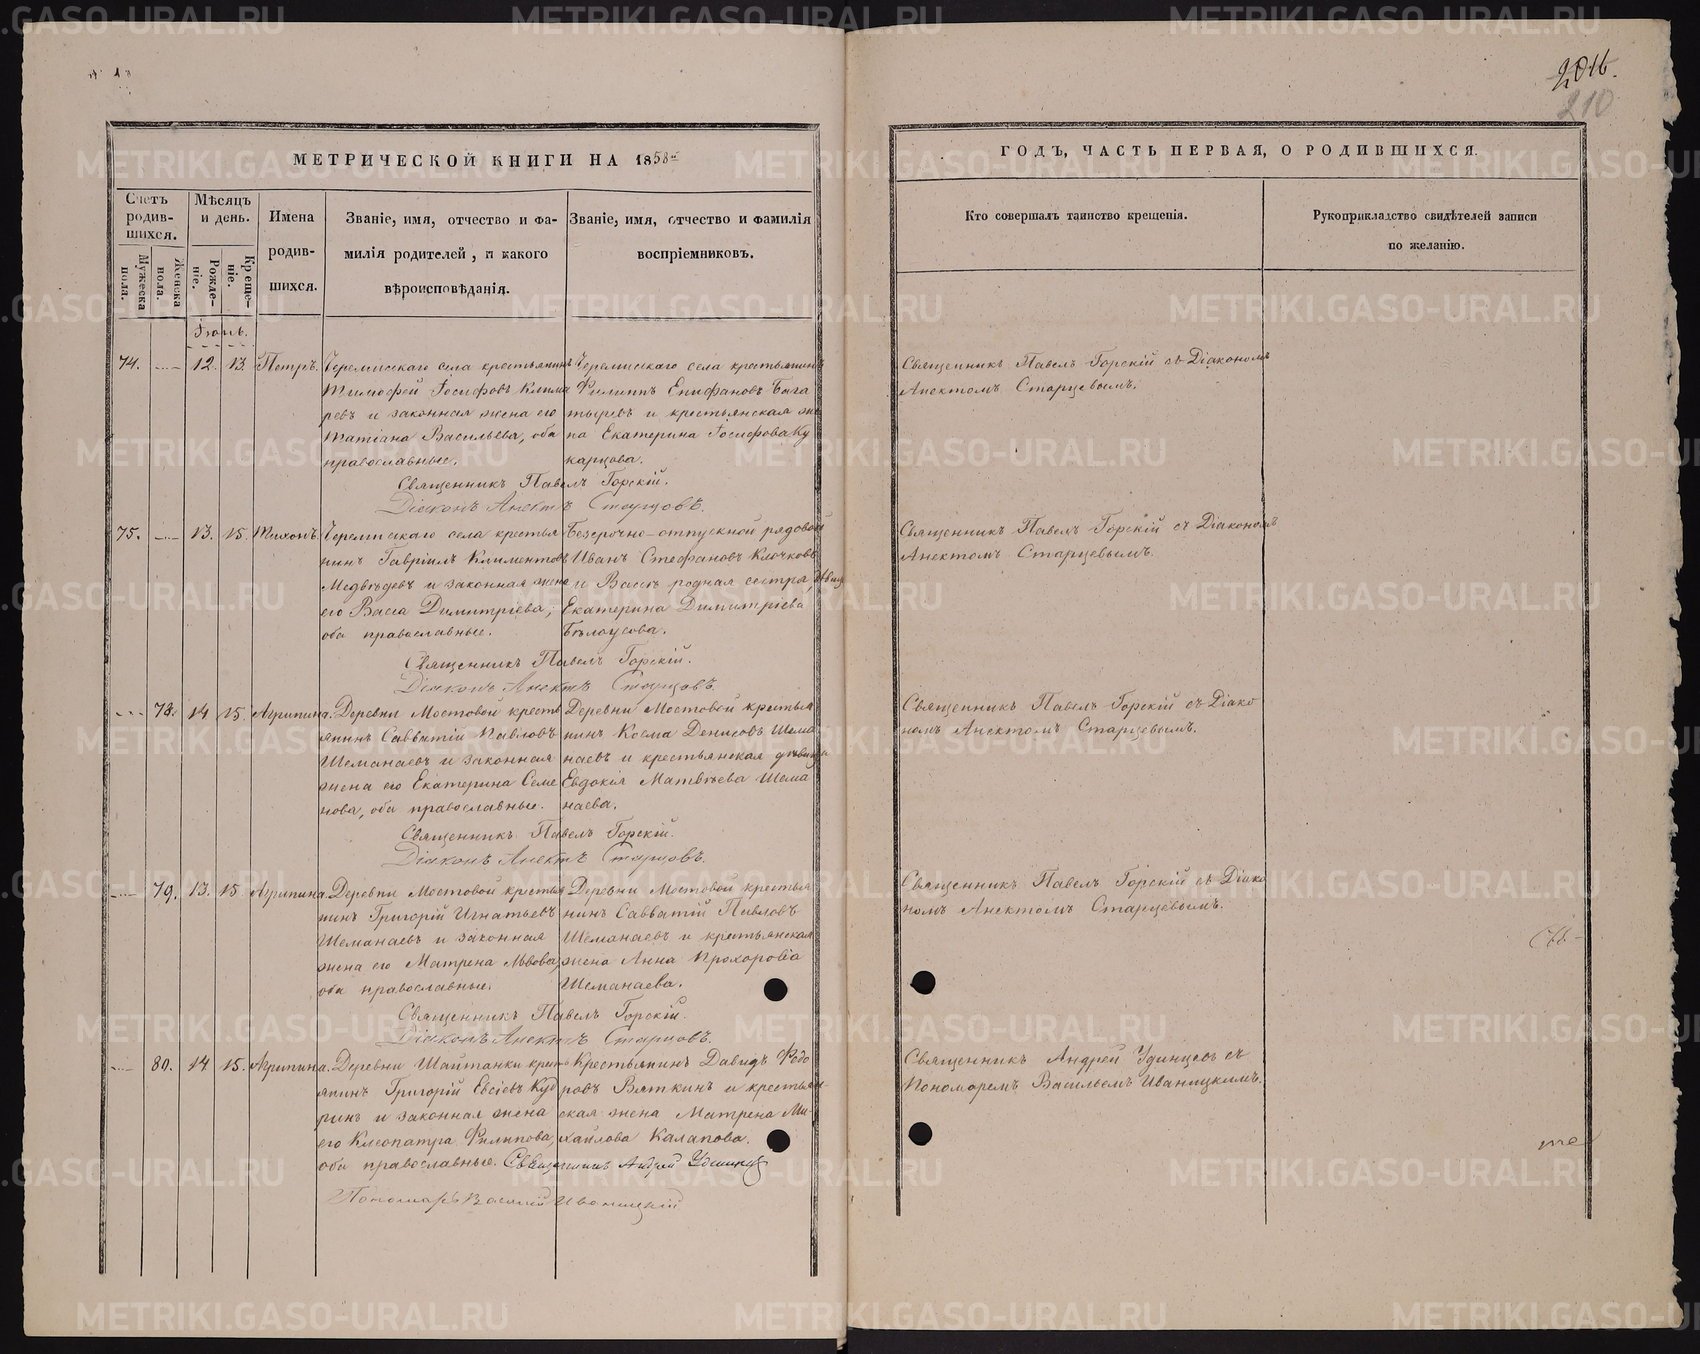 201б.
210
МЕТРИЧЕСКОЙ КНИГИ НА 1858й
ГОДЪ, ЧАСТЬ ПЕРВАЯ, О РОДИВШИХСЯ.
Счетъ родившихся.
Мужеска пола.
Женска пола.
Мѣсяцъ и день.
Рожденіе.
Крещеніе.
Имена родившихся.
Званіе, имя, отчество и фамилія родителей, и какого вѣроисповѣданія.
Званіе, имя, отчество и фамилія воспріемниковъ.
Кто совершалъ таинство крещенія.
Рукоприкладство свидѣтелей записи по желанію.
Іюнь.
74. 12. 13. Петръ.
Черемисскаго села крестьянинъ
Тимофей Іосифовъ Клима
ревъ и законная жена его
Татіана Васильева, оба
православные.
Черемисскаго села крестьянинъ
Филиппъ Епифановъ Бага
тыревъ и крестьянская же
на Екатерина Іосифова Ку
карцова.
Священникъ Павелъ Горскій.
Діаконъ Анектъ Старцовъ.
Священникъ Павелъ Горскій съ Діакономъ
Анектомъ Старцевымъ.
75. 13. 15. Тихонъ.
Черемисскаго села крестья
нинъ Гавріилъ Климентовъ
Медвѣдевъ и законная жена
его Васса Димитріева;
оба православные.
Безсрочно-отпускной рядовой
Иванъ Стефановъ Клочковъ
и Вассѣ родная сестра, дѣвица
Екатерина Димитріева
Бѣлоусова.
Священникъ Павелъ Горскій.
Діаконъ Анектъ Старцовъ.
Священникъ Павелъ Горскій съ Діакономъ
Анектомъ Старцевымъ.
78. 14 15. Агрипина.
Деревни Мостовой кресть
янинъ Савватій Павловъ
Шеманаевъ и законная
жена его Екатерина Семе
нова, оба православные.
Деревни Мостовой крестья
нинъ Косма Денисовъ Шема
наевъ и крестьянская дѣвица
Евдокія Матвѣева Шема
наева.
Священникъ Павелъ Горскій.
Діаконъ Анектъ Старцовъ.
Священникъ Павелъ Горскій съ Діако
номъ Анектомъ Старцевымъ.
79. 13. 15. Агрипина.
Деревни Мостовой крестья
нинъ Григорій Игнатьевъ
Шеманаевъ и законная
жена его Матрена Львова,
оба православные.
Деревни Мостовой крестья
нинъ Савватій Павловъ
Шеманаевъ и крестьянская
жена Анна Прохорова
Шеманаева.
Священникъ Павелъ Горскій.
Діаконъ Анектъ Старцовъ.
Священникъ Павелъ Горскій съ Діако
номъ Анектомъ Старцевымъ.
80. 14 15. Агрипина.
Деревни Шайтанки крест
янинъ Григорій Евсіевъ Куд
ринъ и законная жена
его Клеопатра Филипова,
оба православные.
Крестьянинъ Давидъ Федо
ровъ Вяткинъ и крестьян-
ская жена Матрена Ми-
хайлова Калапова.
Священникъ Андрей Удинцев
Пономарь Василій Иваницкій
Священникъ Андрей Удинцевъ съ
Пономаремъ Васильемъ Иваницкимъ.
METRIKI.GASO-URAL.RU